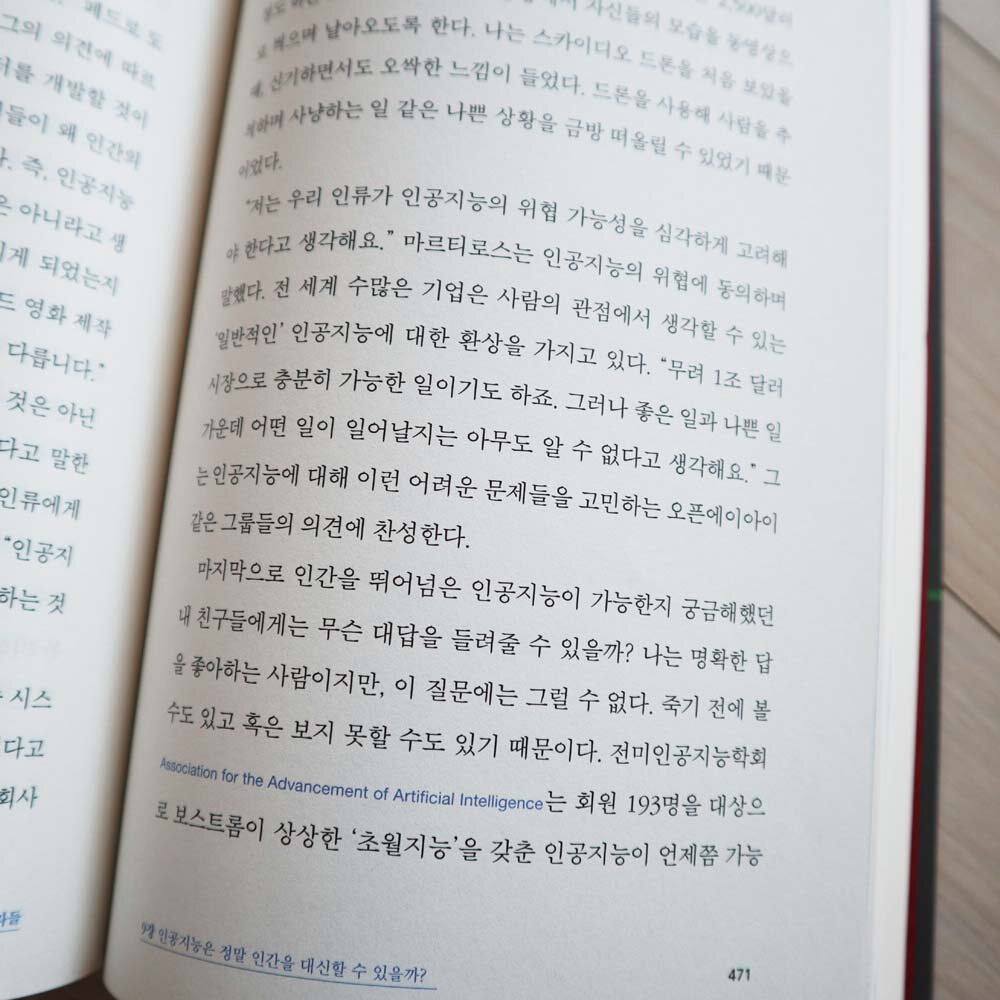 페드로 도
그의 의견에 따르
를 개발할 것이
들이 왜 인간의
즉, 인공지능
은 아니라고 생
게 되었는지
드 영화 제작
다릅니다."
것은 아닌
다고 말한
인류에게
"인공지
하는 것
시스
다고
회사
2,500달러
자신들의 모습을 동영상으
로 찍으며 날아오도록 한다. 나는 스카이디오 드론을 처음 보았을
때, 신기하면서도 오싹한 느낌이 들었다. 드론을 사용해 사람을 추
적하며 사냥하는 일 같은 나쁜 상황을 금방 떠올릴 수 있었기 때문
이었다.
"저는 우리 인류가 인공지능의 위협 가능성을 심각하게 고려해
야 한다고 생각해요." 마르티로스는 인공지능의 위협에 동의하며
말했다. 전 세계 수많은 기업은 사람의 관점에서 생각할 수 있는
'일반적인' 인공지능에 대한 환상을 가지고 있다. "무려 1조 달러
시장으로 충분히 가능한 일이기도 하죠. 그러나 좋은 일과 나쁜 일
가운데 어떤 일이 일어날지는 아무도 알 수 없다고 생각해요." 그
는 인공지능에 대해 이런 어려운 문제들을 고민하는 오픈에이아이
같은 그룹들의 의견에 찬성한다.
마지막으로 인간을 뛰어넘은 인공지능이 가능한지 궁금해했던
내 친구들에게는 무슨 대답을 들려줄 수 있을까? 나는 명확한 답
을 좋아하는 사람이지만, 이 질문에는 그럴 수 없다. 죽기 전에 볼
수도 있고 혹은 보지 못할 수도 있기 때문이다. 전미인공지능학회
Association for the Advancement of Artificial Intelligence는 회원 193명을 대상으
로 보스트롬이 상상한 '초월지능'을 갖춘 인공지능이 언제쯤 가능
9장 인공지능은 정말 인간을 대신할 수 있을까?
471